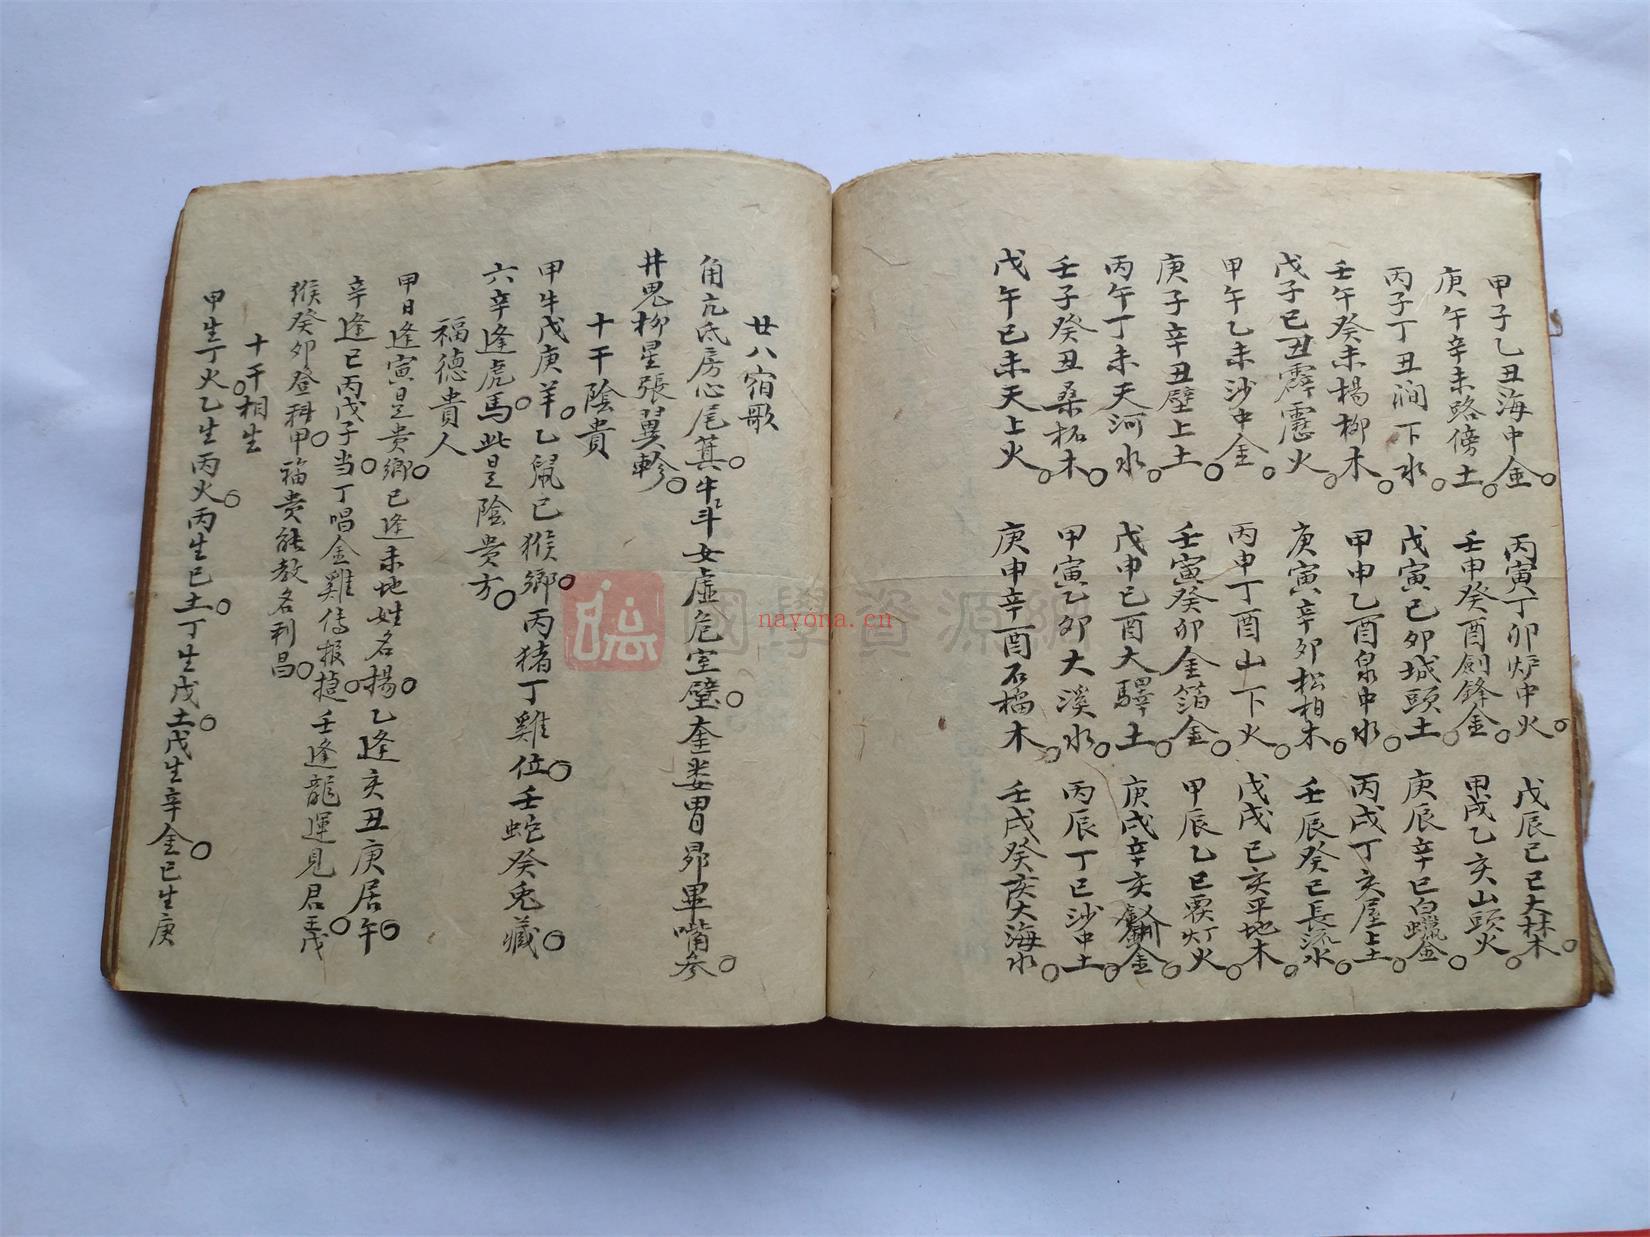 甲子乙丑海中金○ 丙寅丁卯炉中火○ 戊辰己巳大林木○
庚午辛未路傍土○ 壬申癸酉劍鋒金○ 甲戌乙亥山頭火○
丙子丁丑澗下水○ 戊寅己卯城頭土○ 庚辰辛巳白蠟金○
壬午癸未楊柳木○ 甲申乙酉泉中水○ 丙戌丁亥屋上土○
戊子己丑霹靂火○ 庚寅辛卯松柏木○ 壬辰癸巳長流水○
甲午乙未沙中金○ 丙申丁酉山下火○ 戊戌己亥平地木○
庚子辛丑壁上土○ 壬寅癸卯金箔金○ 甲辰乙巳覆灯火○
丙午丁未天河水○ 戊申己酉大驛土○ 庚戌辛亥釵釧金○
壬子癸丑桑柘木○ 甲寅乙卯大溪水○ 丙辰丁巳沙中土○
戊午己未天上火○ 庚申辛酉石榴木○ 壬戌癸亥大海水○
廿八宿歌
角亢氐房心尾箕○牛斗女虛危室壁○奎娄胃昴畢嘴參○
井鬼柳星張翼軫○
十干陰貴
甲牛戊庚羊○乙鼠己猴鄉○丙猪丁雞位○壬蛇癸兔藏○
六辛逢虎馬○此是陰贵方○
福德貴人
甲日逢寅是贵鄉○己逢未地姓名揚○乙逢亥丑庚居午○
辛逢巳丙戊子当○丁唱金雞傳报○壬逢龍運見君王○戊
猴癸卯登科甲○福贵能教名利昌○
十干相生
甲生丁火○乙生丙火○丙生己土○丁生戊土○戊生辛金○己生庚
國學資源網
nayona.cn